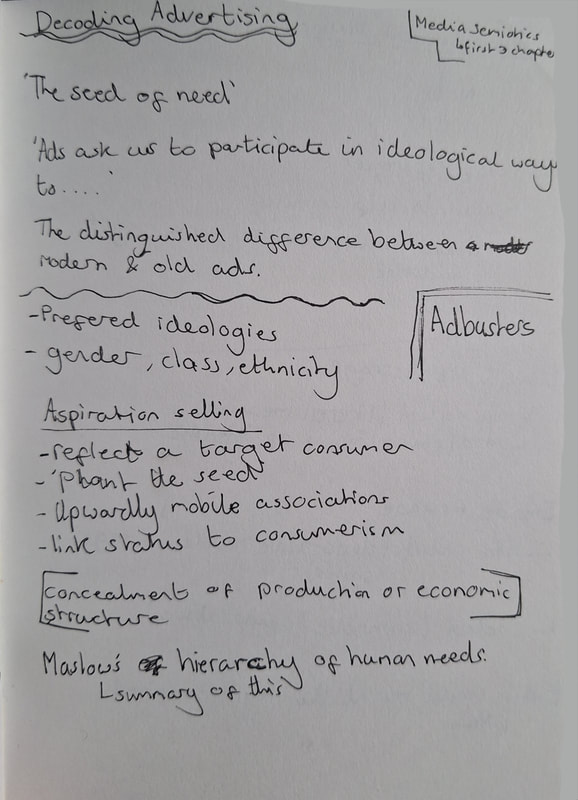 Decoding Advertising
Media Semiotics
↳first 3 chapter
'The seed of need'
'Ads ask us to participate in ideological way
to....'
The distinguished difference between
modern & old ads.
-Prefered ideologies
- gender, class, ethnicity
Adbusters
Aspiration selling
-reflect a target consumer
-'Plant the seed'
-Upwardly mobile associations
-link status to consumerism
Concealment of production or economic
structure
Maslow's hierarchy of human needs.
└summary of this